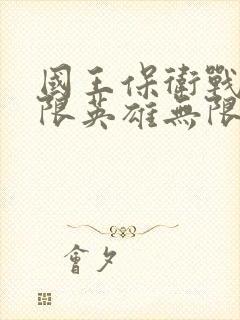 國王保衛戰
限英雄無限
會夕